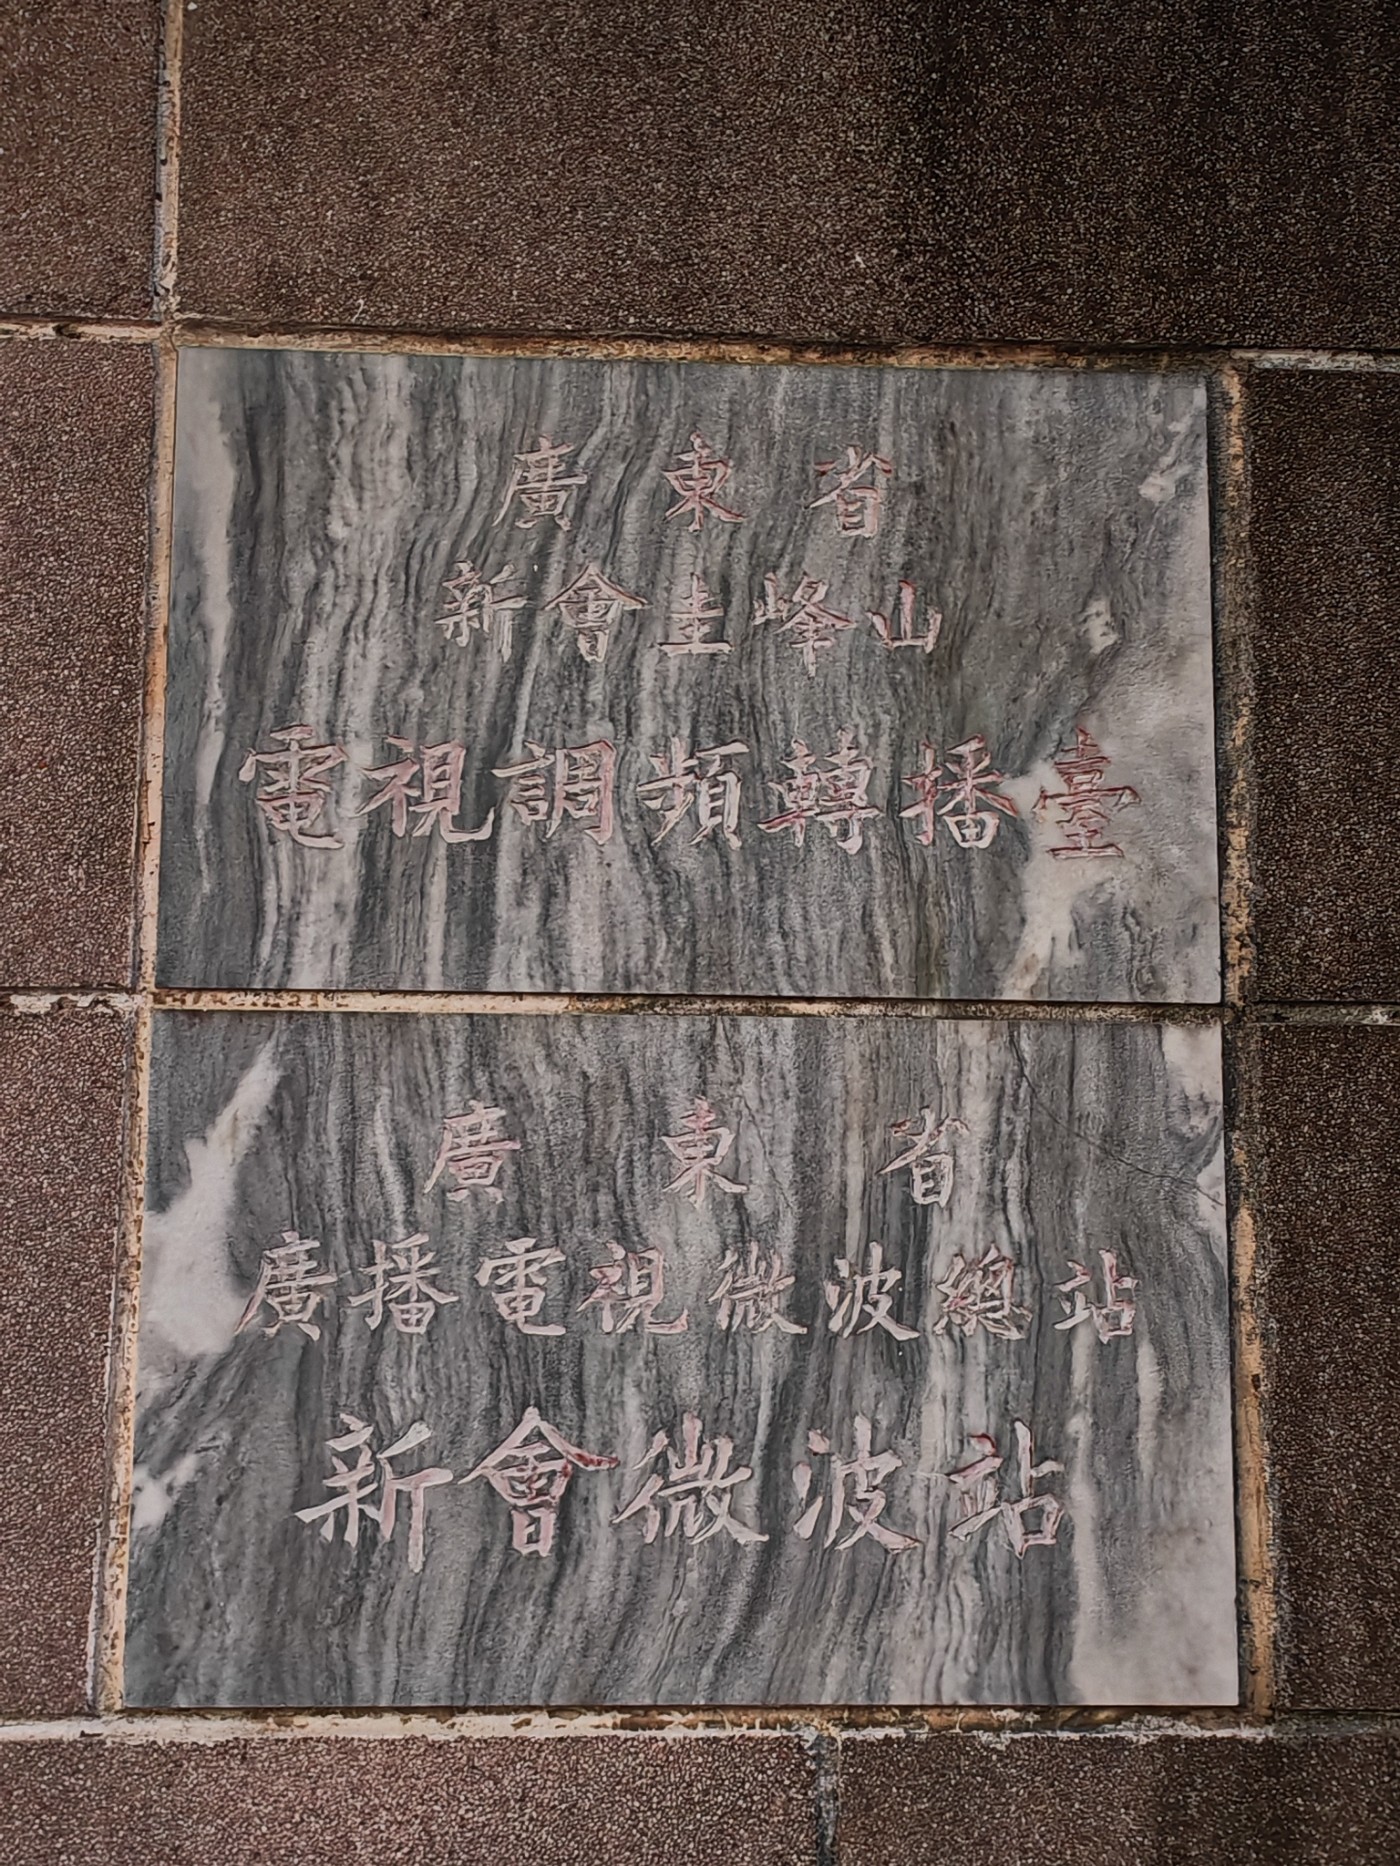 廣東省
新會圭峰山
電視調頻轉播臺
廣東省
廣播電視微波總站
新會微波站